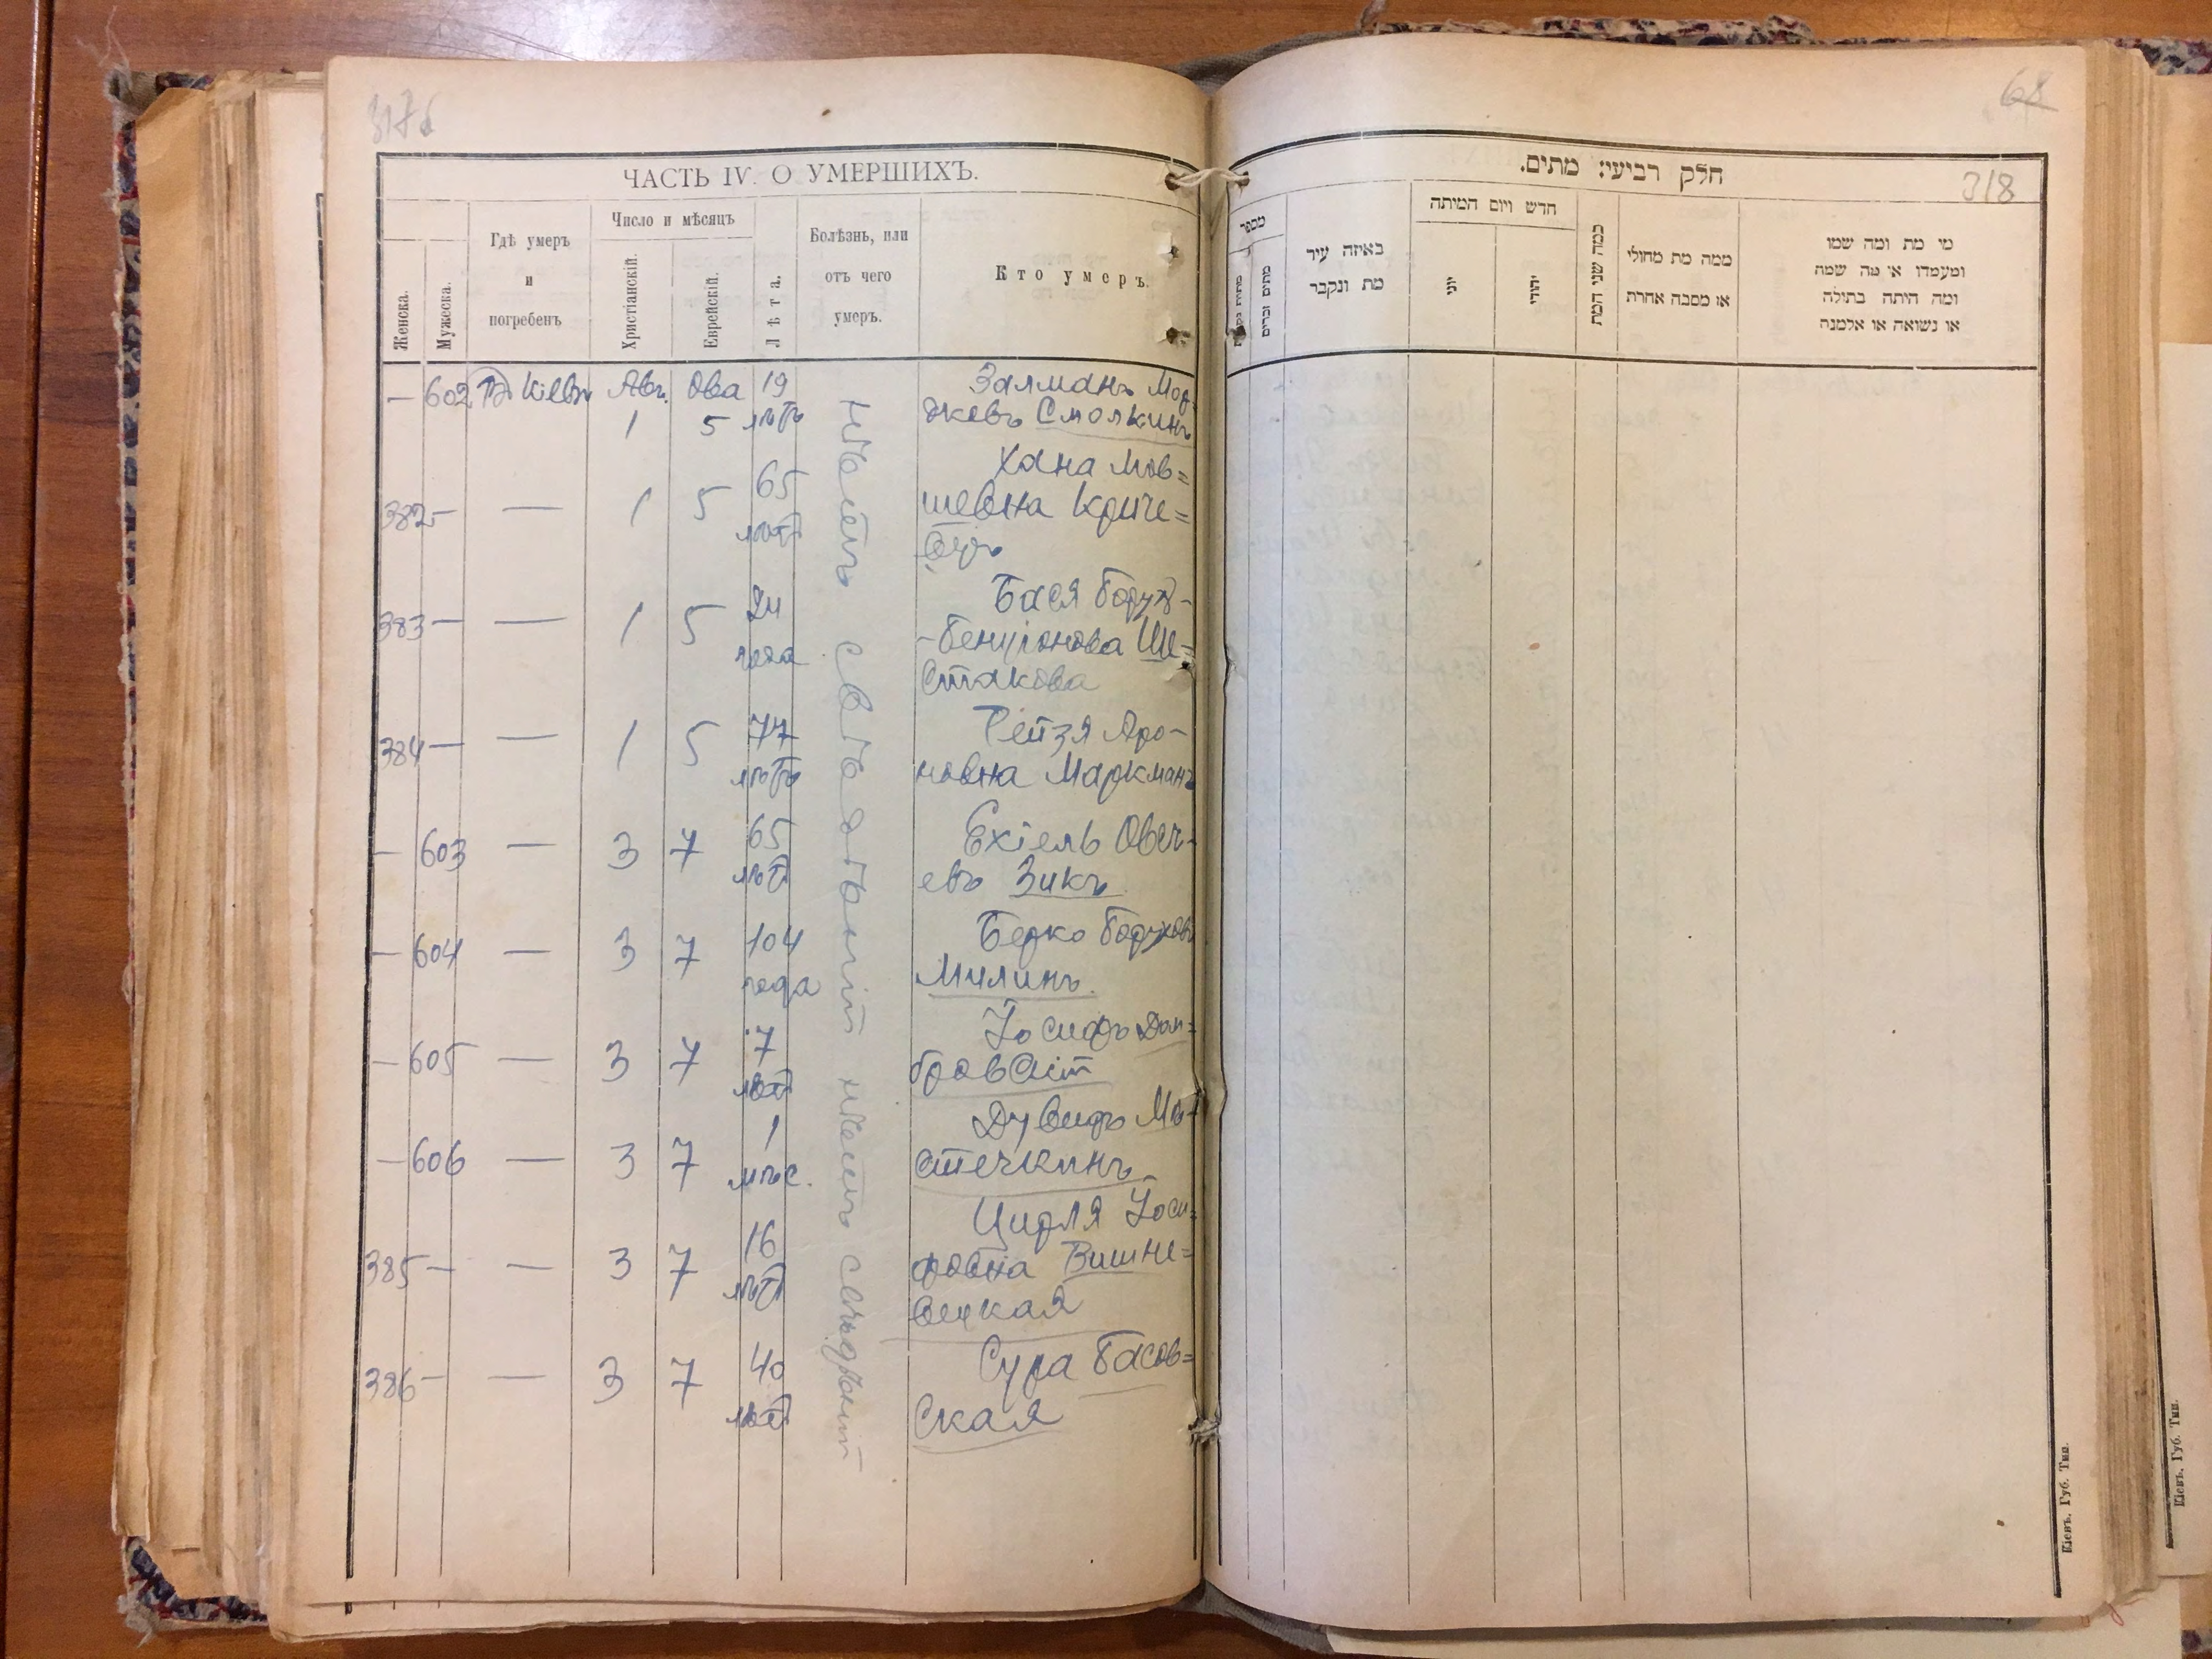 317б
68
ЧАСТЬ IV. О УМЕРШИХЪ.
Женска.
Мужеска.
Гдѣ умеръ
и
погребенъ
Число и мѣсяцъ
Христіанскій.
Еврейскій.
Лѣта.
Болѣзнь, или
отъ чего
умеръ.
Кто умеръ.
— 602 Кіевъ Авг. Ова 19 Залманъ Мор-
1 5 лѣтъ дковъ Смолкинъ
Хана Мов=
382 — — 1 5 65 шевна Криче=
лѣтъ
Бася Борух-
383 — — 1 5 24 -Бенціонова Ше=
года стакова
Рейзя Аро-
384 — — 1 5 77 новна Маркманъ
лѣтъ
— 603 — 3 7 65 Ехіель Овсѣ-
лѣтъ евъ Зикъ
— 604 — 3 7 104 Берко Боруховъ
года Милинъ.
— 605 — 3 7 7 Іосифъ Дом=
лѣтъ бровскій
— 606 — 3 7 1 Дувидъ Мѣ-
мѣс. стечкинъ
385 — — 3 7 16 Цирля Іоси=
лѣтъ фовна Вишне=
вецкая
386 — — 3 7 40 Сура Басов=
лѣтъ ская
нѣтъ свѣдѣній нѣтъ свѣдѣній
חלק רביעי: מתים.
318
מספר
מתים זכרים
באיזה עיר
מת ונקבר
חדש ויום המיתה
יוני
יהודי
כמה שני המת
ממה מת מחולי
או מסבה אחרת
מי מת ומה שמו
ומעמדו או מה שמה
ומה היתה בתולה
או נשואה או אלמנה
Кіевъ. Губ. Тип.
Кіевъ. Губ. Тип.